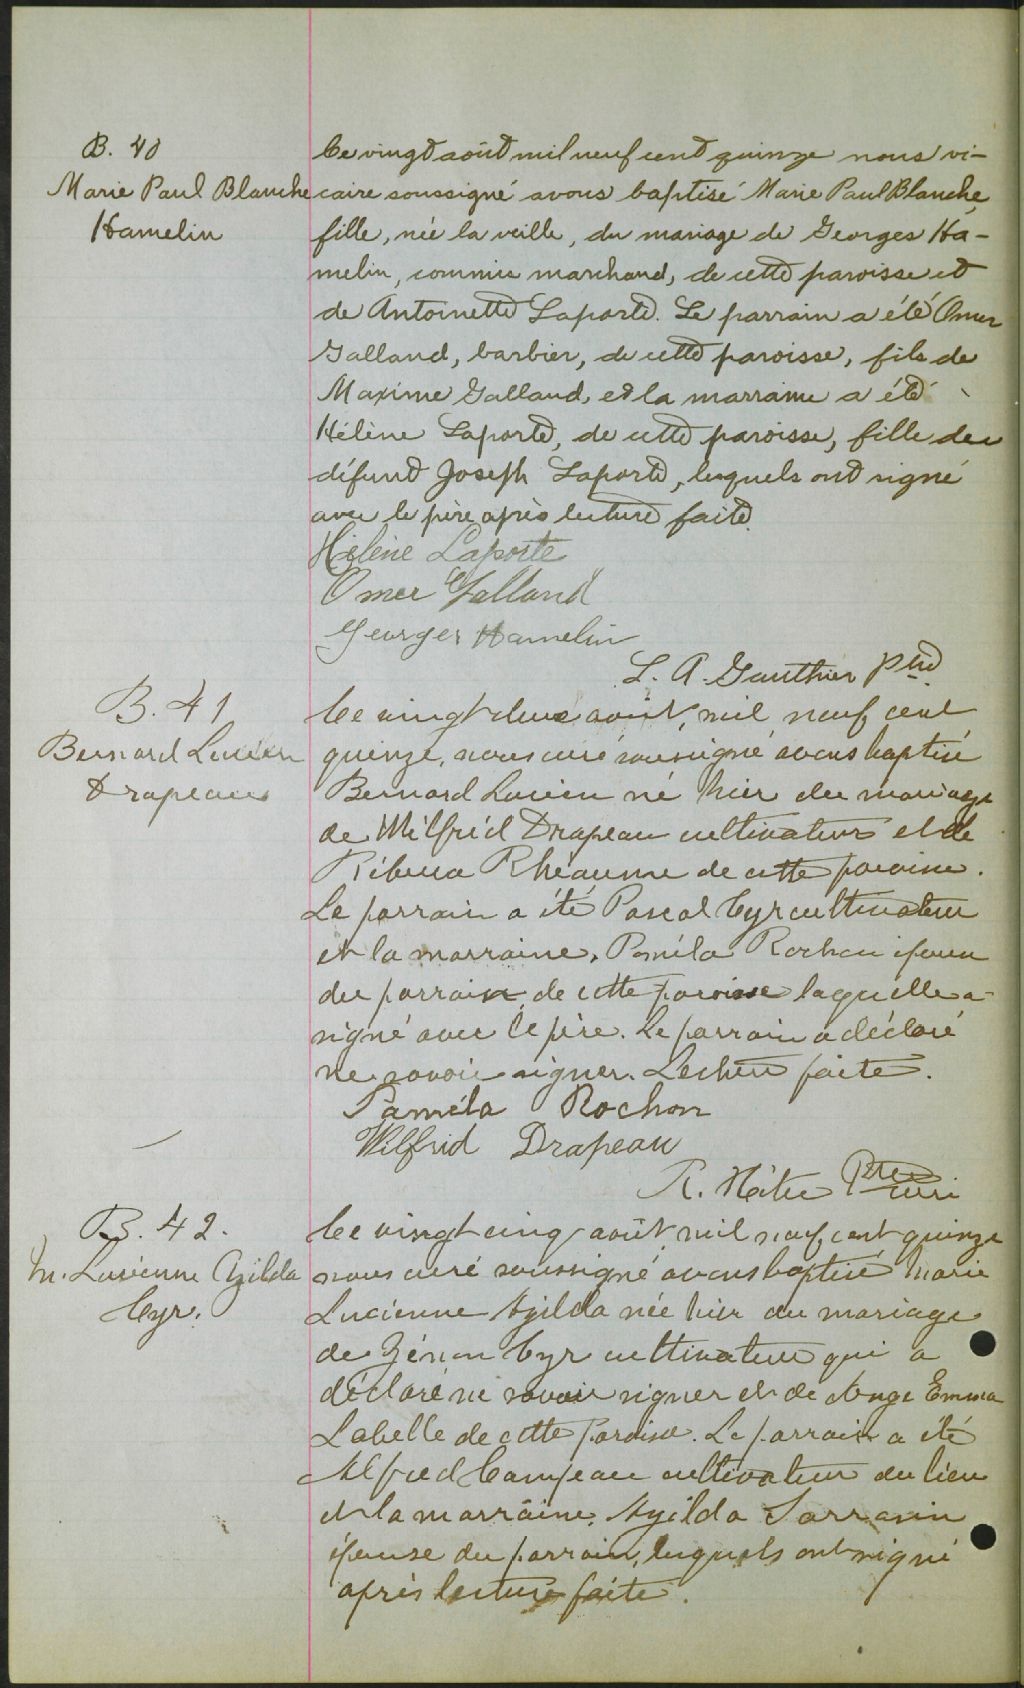 B. 40
Marie Paul Blanche
Hamelin
Ce vingt août mil neuf cent quinze nous vi-
caire soussigné avons baptisé Marie Paul Blanche,
fille, née la veille, du mariage de Georges Ha-
melin, commis marchand, de cette paroisse et
de Antoinette Laporte. Le parrain a été Omer
Galland, barbier, de cette paroisse, fils de
Maxime Galland, et la marraine a été
Hélène Laporte, de cette paroisse, fille de
défunt Joseph Laporte, lesquels ont signé
avec le père après lecture faite.
Hélène Laporte
Omer Galland
Georges Hamelin
L. A. Gauthier ptre
B. 41
Bernard Lucien
Drapeau
Ce vingt deux août, mil neuf cent
quinze, nous curé soussigné avons baptisé
Bernard Lucien né hier du mariage
de Wilfrid Drapeau cultivateur et de
Rébecca Rhéaume de cette paroisse.
Le parrain a été Pascal Cyr cultivateur
et la marraine, Paméla Rochon épouse
du parrain de cette paroisse laquelle a
signé avec le père. Le parrain a déclaré
ne savoir signer. Lecture faite.
Paméla Rochon
Wilfrid Drapeau
R. Ptre curé
B. 42.
M. Lucienne Azilda
Cyr.
Ce vingt cinq août mil neuf cent quinze
nous curé soussigné avons baptisé Marie
Lucienne Azilda née hier du mariage
de Zénon Cyr cultivateur qui a
déclaré ne savoir signer et de Ange Emma
Labelle de cette paroisse. Le parrain a été
Alfred Campeau cultivateur du lieu
et la marraine, Azilda Sarrasin
épouse du parrain, lesquels ont signé
après lecture faite.